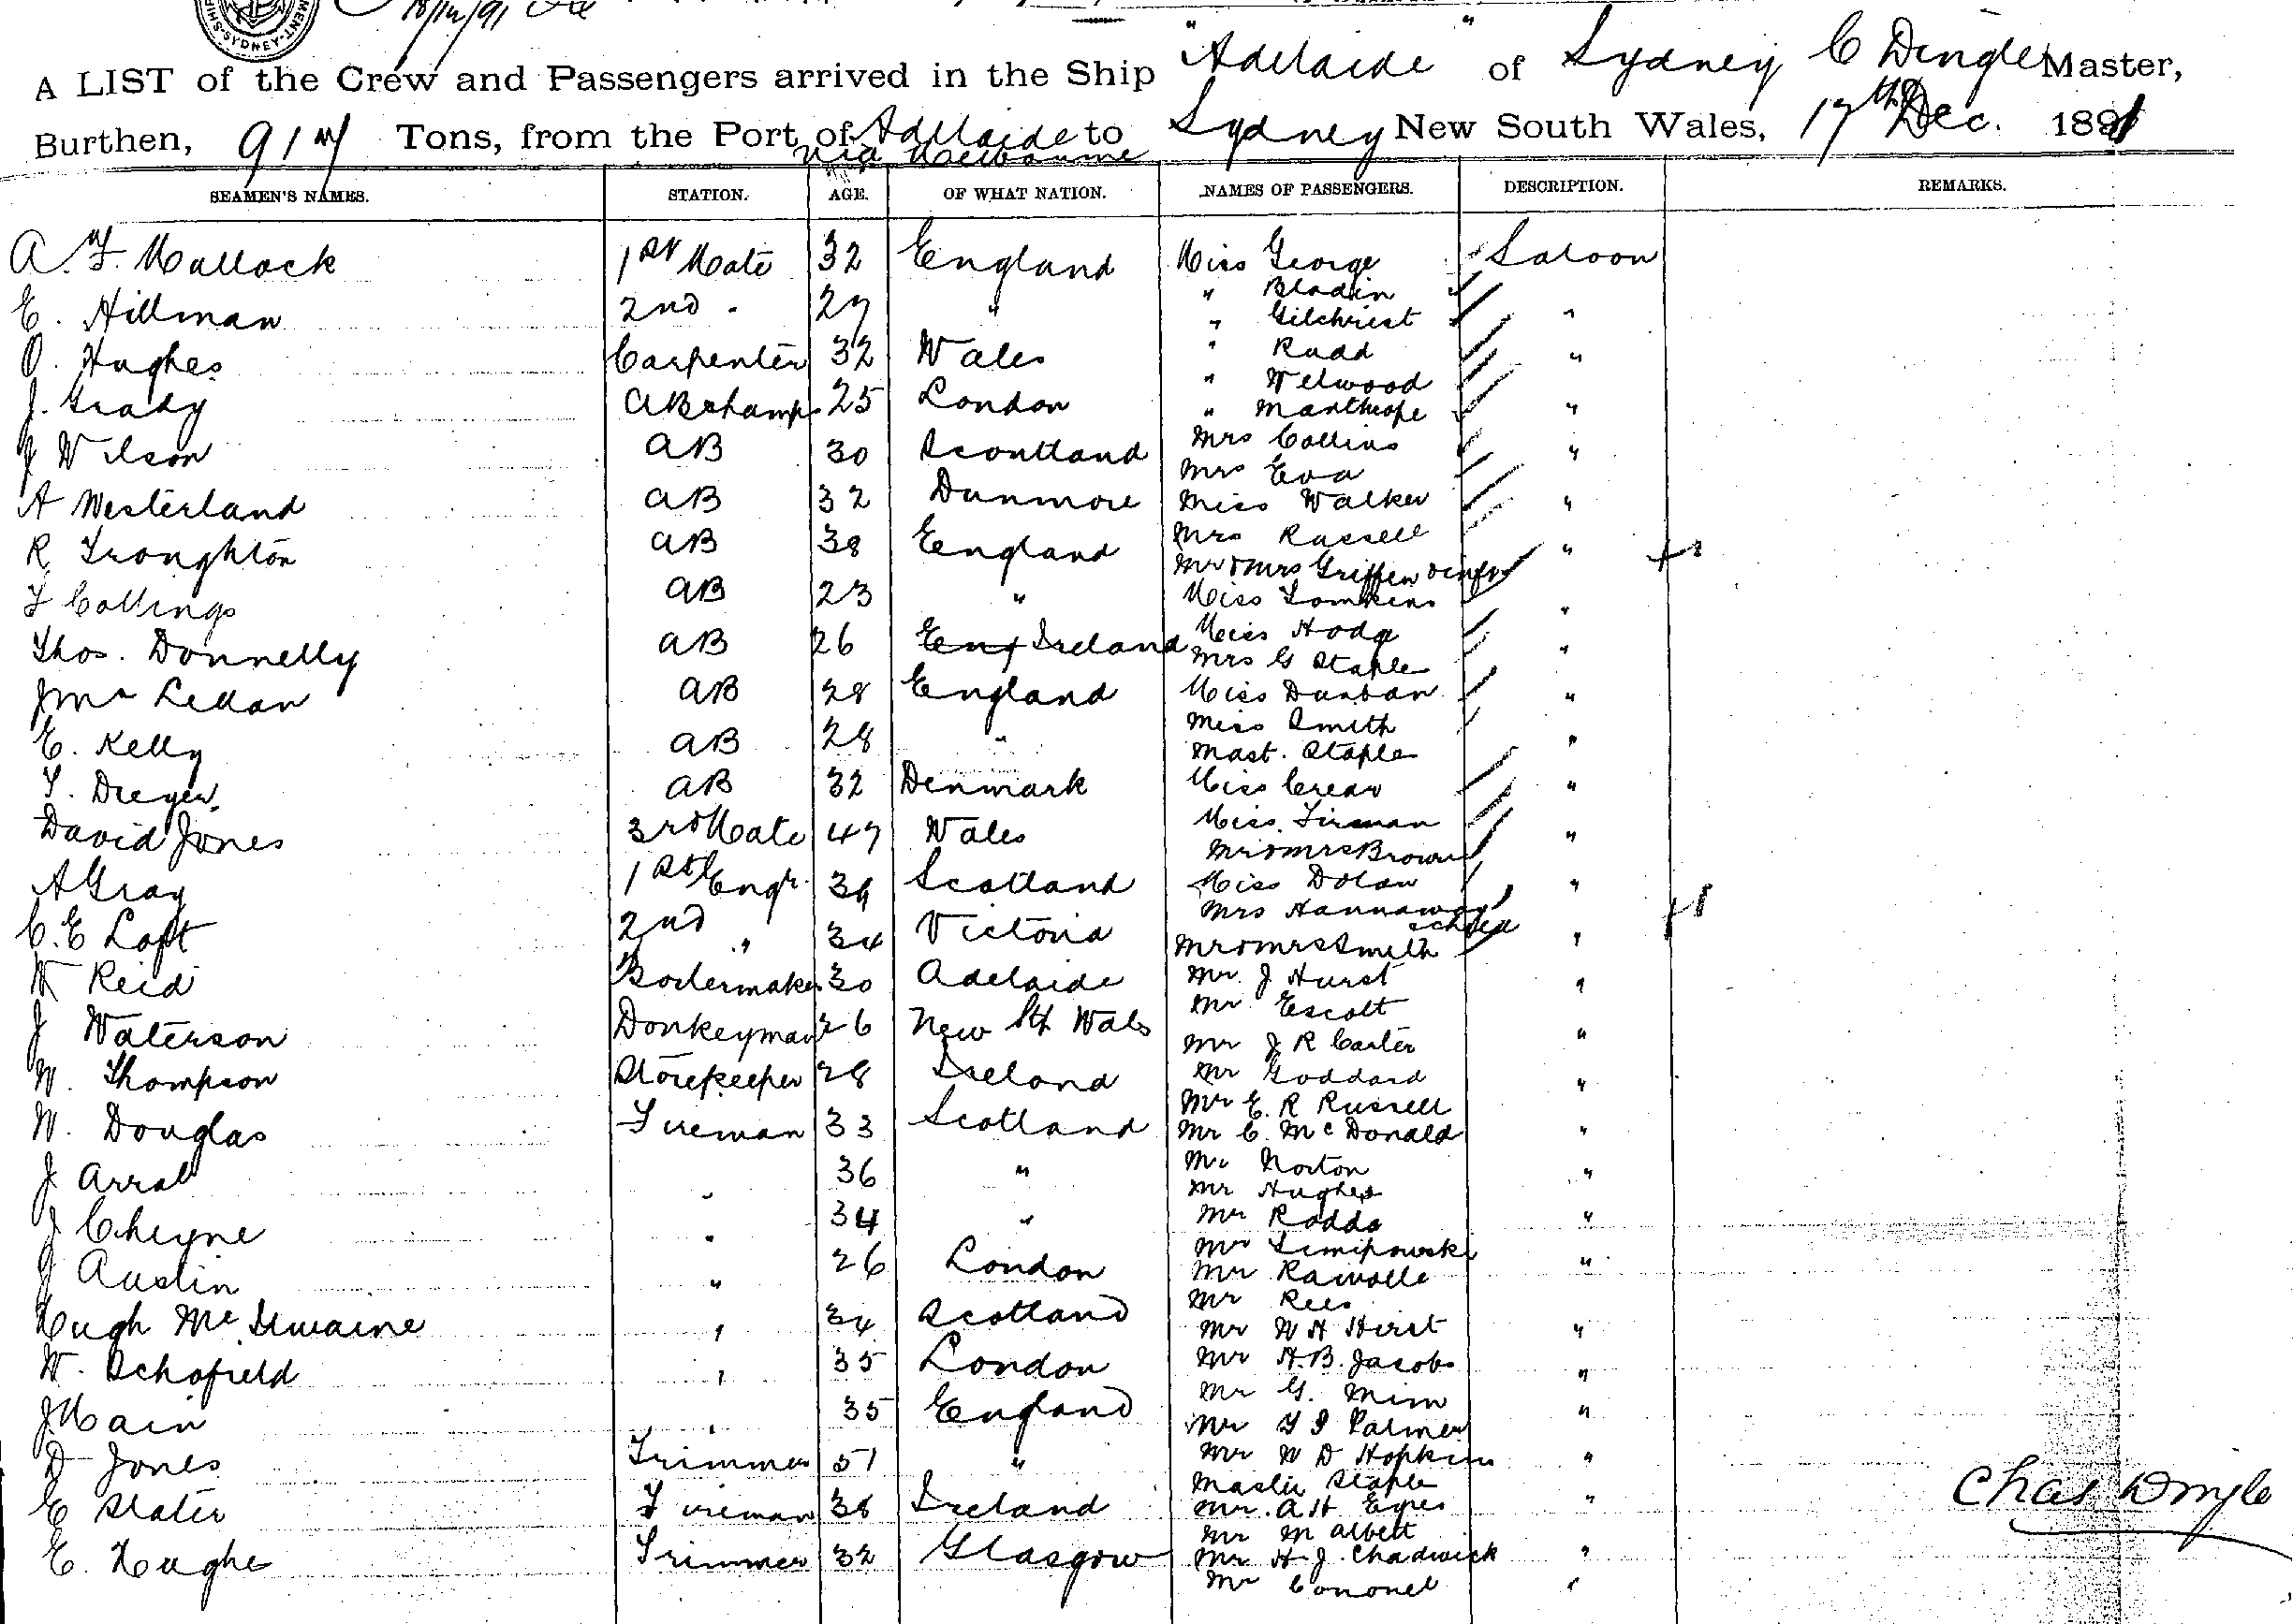 18/12/91
SYDNEY
A LIST of the Crew and Passengers arrived in the Ship "Adelaide" of Sydney C Dingle Master,
Burthen, 917 Tons, from the Port of Adelaide to Sydney New South Wales, 17th Dec. 1891
via Melbourne
SEAMEN'S NAMES. STATION. AGE. OF WHAT NATION. NAMES OF PASSENGERS. DESCRIPTION. REMARKS.
A. F. Mallock 1st Mate 32 England Miss George Saloon
" Bladin
E. Hillman 2nd " 27 " " Gilchrist "
O. Hughes Carpenter 32 Wales " Rudd "
" Welwood
J. Grady AB & Lamps 25 London " Manthorpe "
J Wilson AB 30 Scoutland Mrs Collins "
Mrs Eva
A Westerland AB 32 Dunmore Miss Walker "
R Troughton AB 38 England Mrs Russell "
Mr & Mrs Griffen & inf
T Collings AB 23 " Miss Tomkins "
Thos. Donnelly AB 26 Eng Ireland Miss Hodge "
Mrs G Staple
J Mc Lellan AB 28 England Miss Dunban "
Miss Smith
E. Kelly AB 28 " Mast. Staple "
T. Dreyer AB 32 Denmark Miss Crean "
David Jones 3rd Mate 47 Wales Miss Firman "
Mr & Mrs Brown
A Gray 1st Engr. 39 Scotland Miss Dolan "
Mrs Hannaway
& child
C. E Loft 2nd " 34 Victoria Mr & Mrs Smith "
W Reid Boilermaker 30 Adelaide Mr. J Hurst "
Mr Escott
J Waterson Donkeyman 26 New Sth Wals Mr J R Carter "
W. Thompson Storekeeper 28 Ireland Mr Goddard "
Mr E. R Russell
W. Douglas Fireman 33 Scotland Mr C. Mc Donald "
J Arral " 36 " Mr Norton "
Mr Hughes
J Cheyne " 34 " Mr Rodda "
Mr
J Austin " 26 London Mr Rawolle "
Mr Rees
Hugh Mc Ilwaine " 34 Scotland Mr W H Hirst "
W. Schofield " 35 London Mr H. B. Jacobs "
Mr G. Mim
J Main " 35 England Mr Palmer "
D Jones Trimmer 51 " Mr W D Hopkins "
Master Staple
E Slater Fireman 38 Ireland Mr. A H Eyres "
Mr M Albert
E. Hughe Trimmer 32 Glasgow Mr H. J. Chadwick "
Mr Coronel "
Chas Dingle